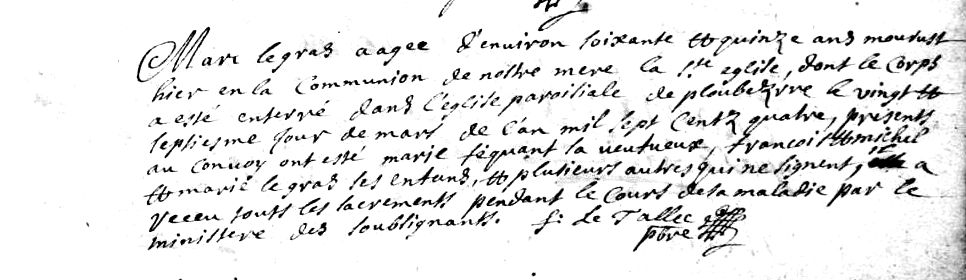 Marc le gras aagee d'environ soixante et quinze ans mourust
hier en la Communion de nostre mere la ste eglise, dont le Corps
a esté enterré dans l'eglise paroissiale de ploubezvre le vingt et
septiesme jour de mars de l'an mil sept Centz quatre, présents
au Convoy ont esté marie séquant la veufveux, francois et michel
et marie le gras ses enfans, et plusieurs autres qui ne signent, il a
receu touts les sacrements pendant le Cours de sa maladie par le
ministere des soubsignants. f: Le Tallec
pbre